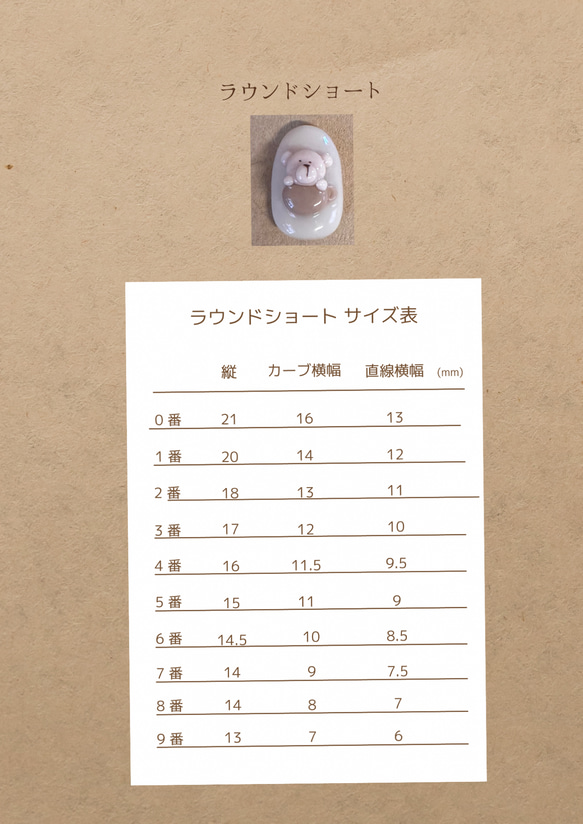 ラウンドショート
ラウンドショート サイズ表
縦 カーブ横幅 直線横幅 (mm)
0番 21 16 13
1番 20 14 12
2番 18 13 11
3番 17 12 10
4番 16 11.5 9.5
5番 15 11 9
6番 14.5 10 8.5
7番 14 9 7.5
8番 14 8 7
9番 13 7 6